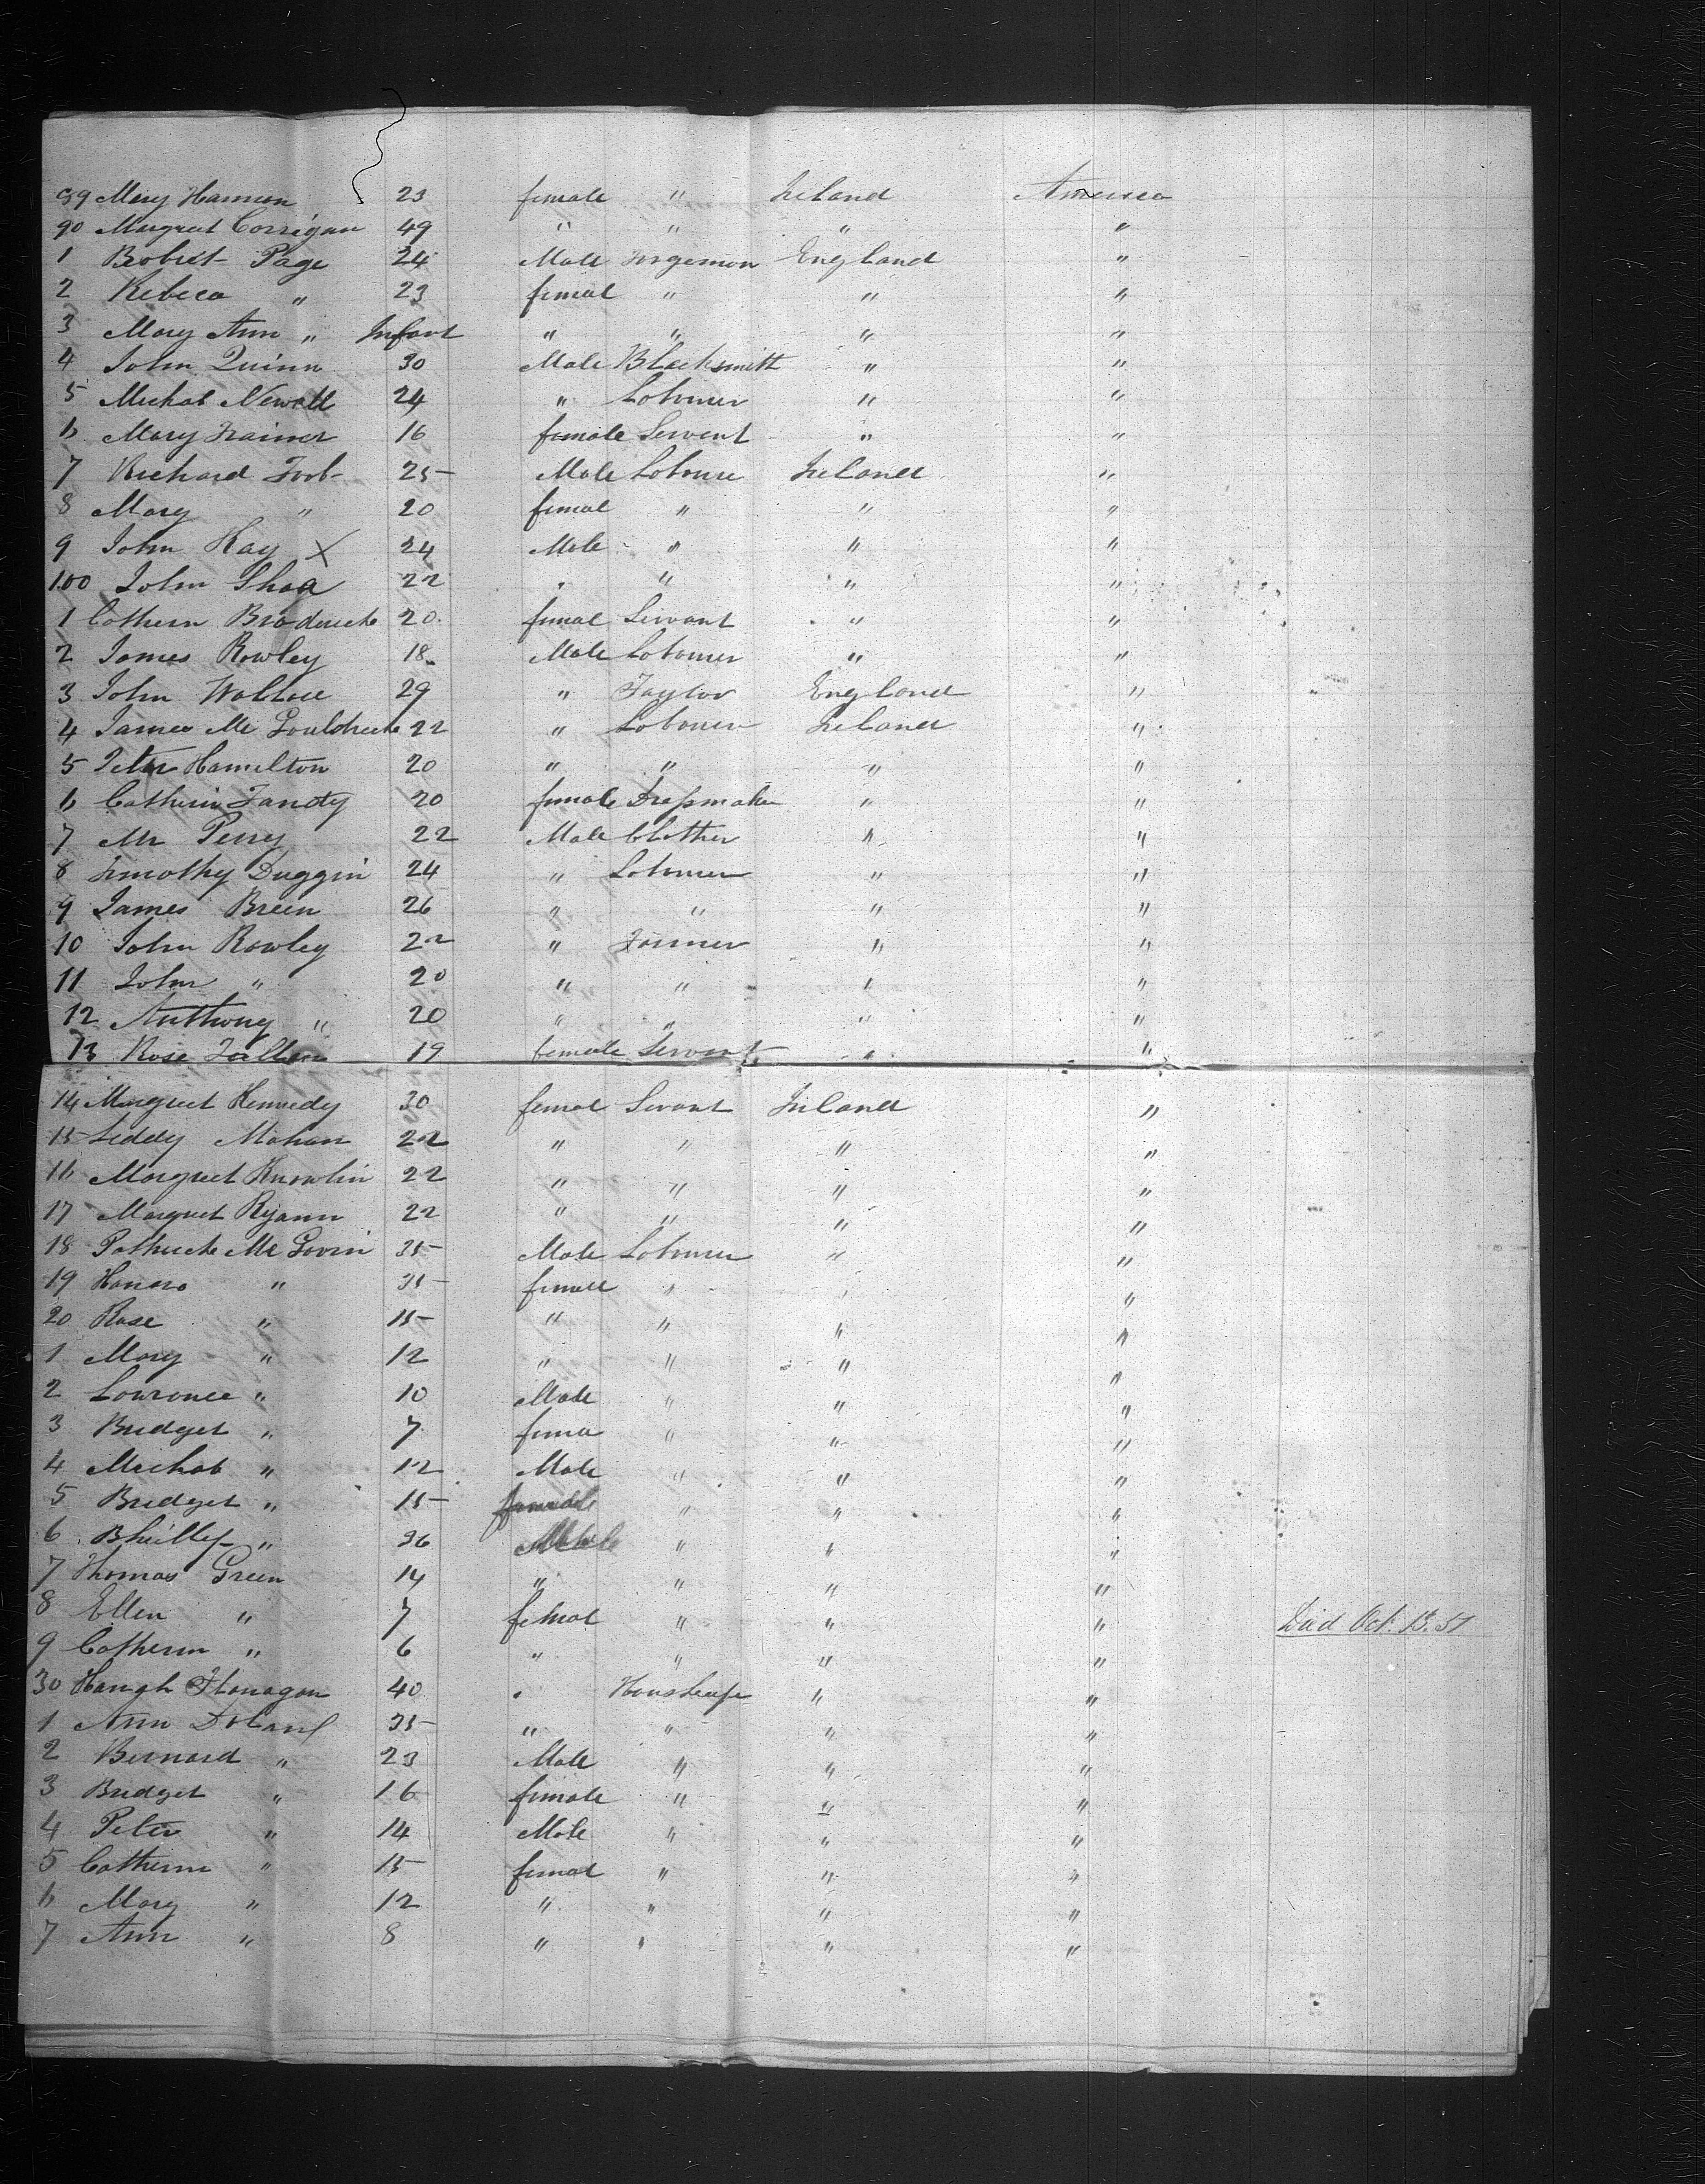 89 Mary Hannon 23 female " Ireland America
90 Margret Corrigan 49 " " " "
1 Robert Page 24 Male Forgemon England "
2 Rebeca " 23 femal " " "
3 Mary Ann " Infant " " " "
4 John Quinn 30 Male Blacksmith " "
5 Michal Newall 24 " Labourer " "
6 Mary Trainer 16 female Servant " "
7 Richard 25 Male Laboure Ireland "
8 Mary " 20 femal " " "
9 John Kay X 24 Male " " "
100 John Shea 22 " " " "
1 Cathern Broderick 20 femal Servant " "
2 James Rowley 18 Male Labourer " "
3 John Wallace 29 " Taylor England "
4 James Mc Gouldrick 22 " Labourer Ireland "
5 Peter Hamilton 20 " " " "
6 Catherin 20 female Dressmaker " "
7 Mr Perry 22 Male Clothier " "
8 Timothy Duggin 24 " Labourer " "
9 James Breen 26 " " " "
10 John Rowley 22 " Farmer " "
11 John " 20 " " " "
12 Anthony " 20 " " " "
13 Rose Fallon 19 female Servant " "
14 Margret Kennedy 30 femal Servant Ireland "
15 Liddy Mahan 22 " " " "
16 Margret Knowlin 22 " " " "
17 Margret Ryann 22 " " " "
18 Pathrick Mc Govin 35 Male Labourer " "
19 Honora " 35 female " " "
20 Rose " 15 " " " "
1 Mary " 12 " " " "
2 Lawrence " 10 Male " " "
3 Bridget " 7 fema " " "
4 Michal " 12 Male " " "
5 Bridget " 15 female " " "
6 Phillip " 36 Male " " "
7 Thomas Green 14 " " " "
8 Ellen " 7 femal " " " Died Oct. 13. 51
9 Catherin " 6 " " " "
30 Hanagh Flanagan 40 " " "
1 Ann Doland 35 " " " "
2 Bernard " 23 Male " " "
3 Bridget " 16 female " " "
4 Peter " 14 Male " " "
5 Catherin " 15 femal " " "
6 Mary " 12 " " " "
7 Ann " 8 " " " "